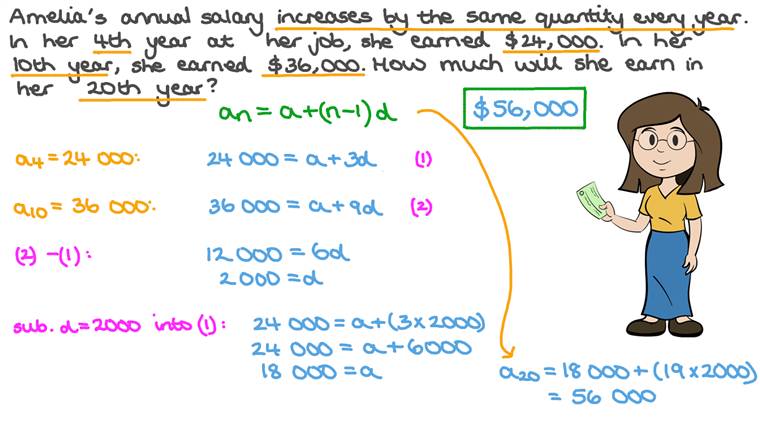 Amelia's annual salary increases by the same quantity every year.
In her 4th year at her job, she earned $24,000. In her
10th year, she earned $36,000. How much will she earn in
her 20th year?
an = a+(n-1)d
$56,000
a4 = 24 000: 24 000 = a+3d (1)
a10 = 36 000: 36 000 = a+9d (2)
(2) -(1): 12 000 = 6d
2 000 = d
sub. d=2000 into (1): 24 000 = a+(3×2000)
24 000 = a+6000
18 000 = a
a20 = 18 000 + (19×2000)
= 56 000